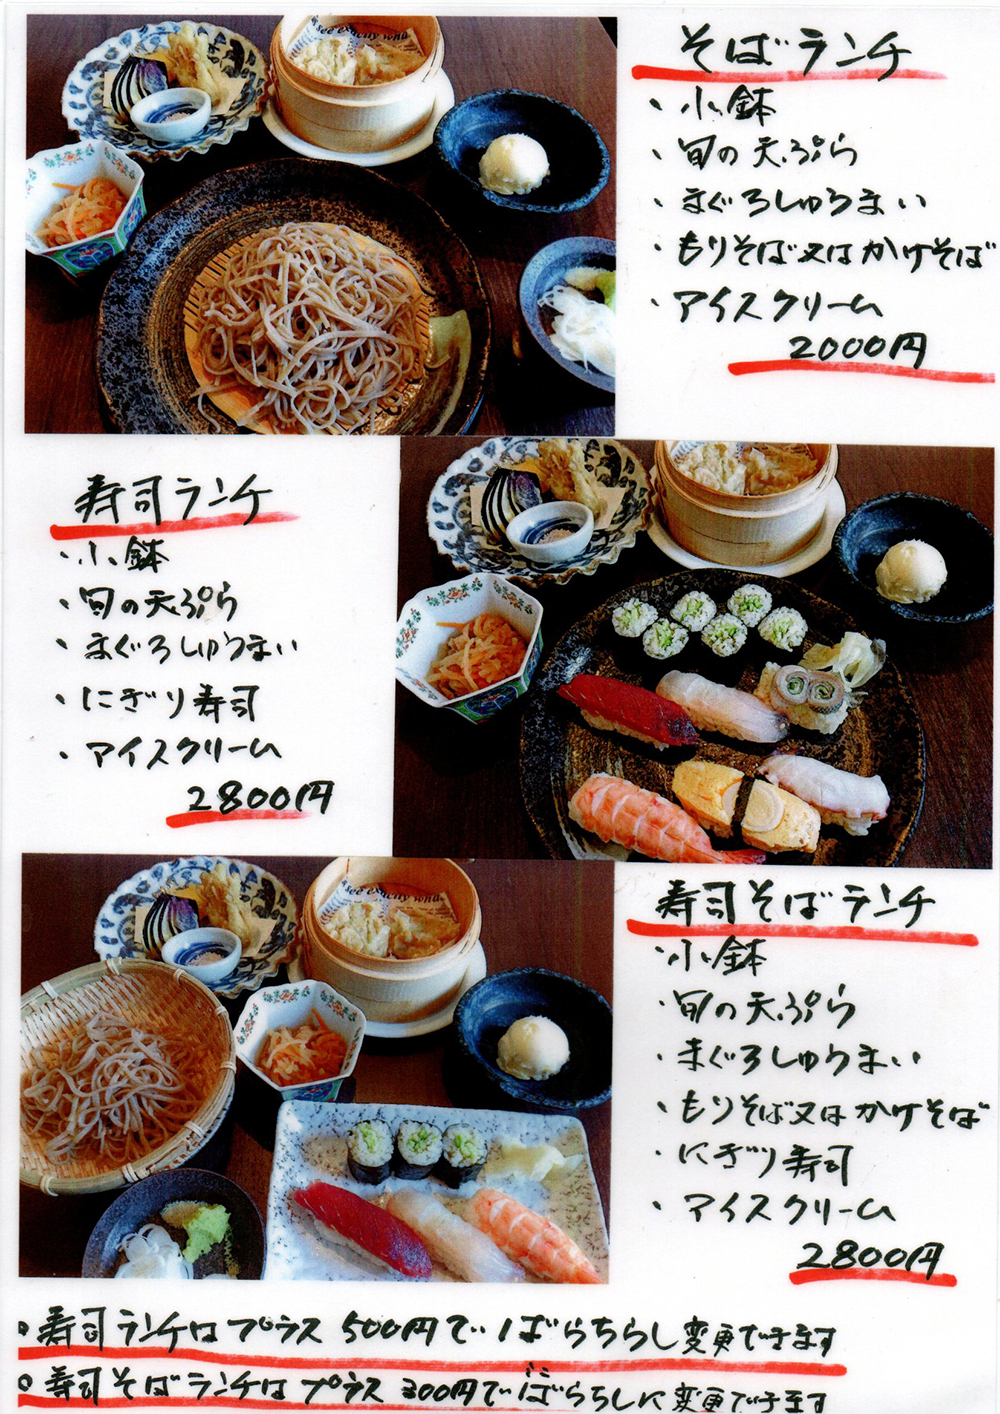 see exactly what
そばランチ
・小鉢
・旬の天ぷら
・まぐろしゅうまい
・もりそば又はかけそば
・アイスクリーム
2000円
寿司ランチ
・小鉢
・旬の天ぷら
・まぐろしゅうまい
・にぎり寿司
・アイスクリーム
2800円
see exactly what
寿司そばランチ
・小鉢
・旬の天ぷら
・まぐろしゅうまい
・もりそば又はかけそば
・にぎり寿司
・アイスクリーム
2800円
・寿司ランチはプラス500円でばらちらし変更できます
○寿司そばランチはプラス300円でミニばらちらしに変更できます